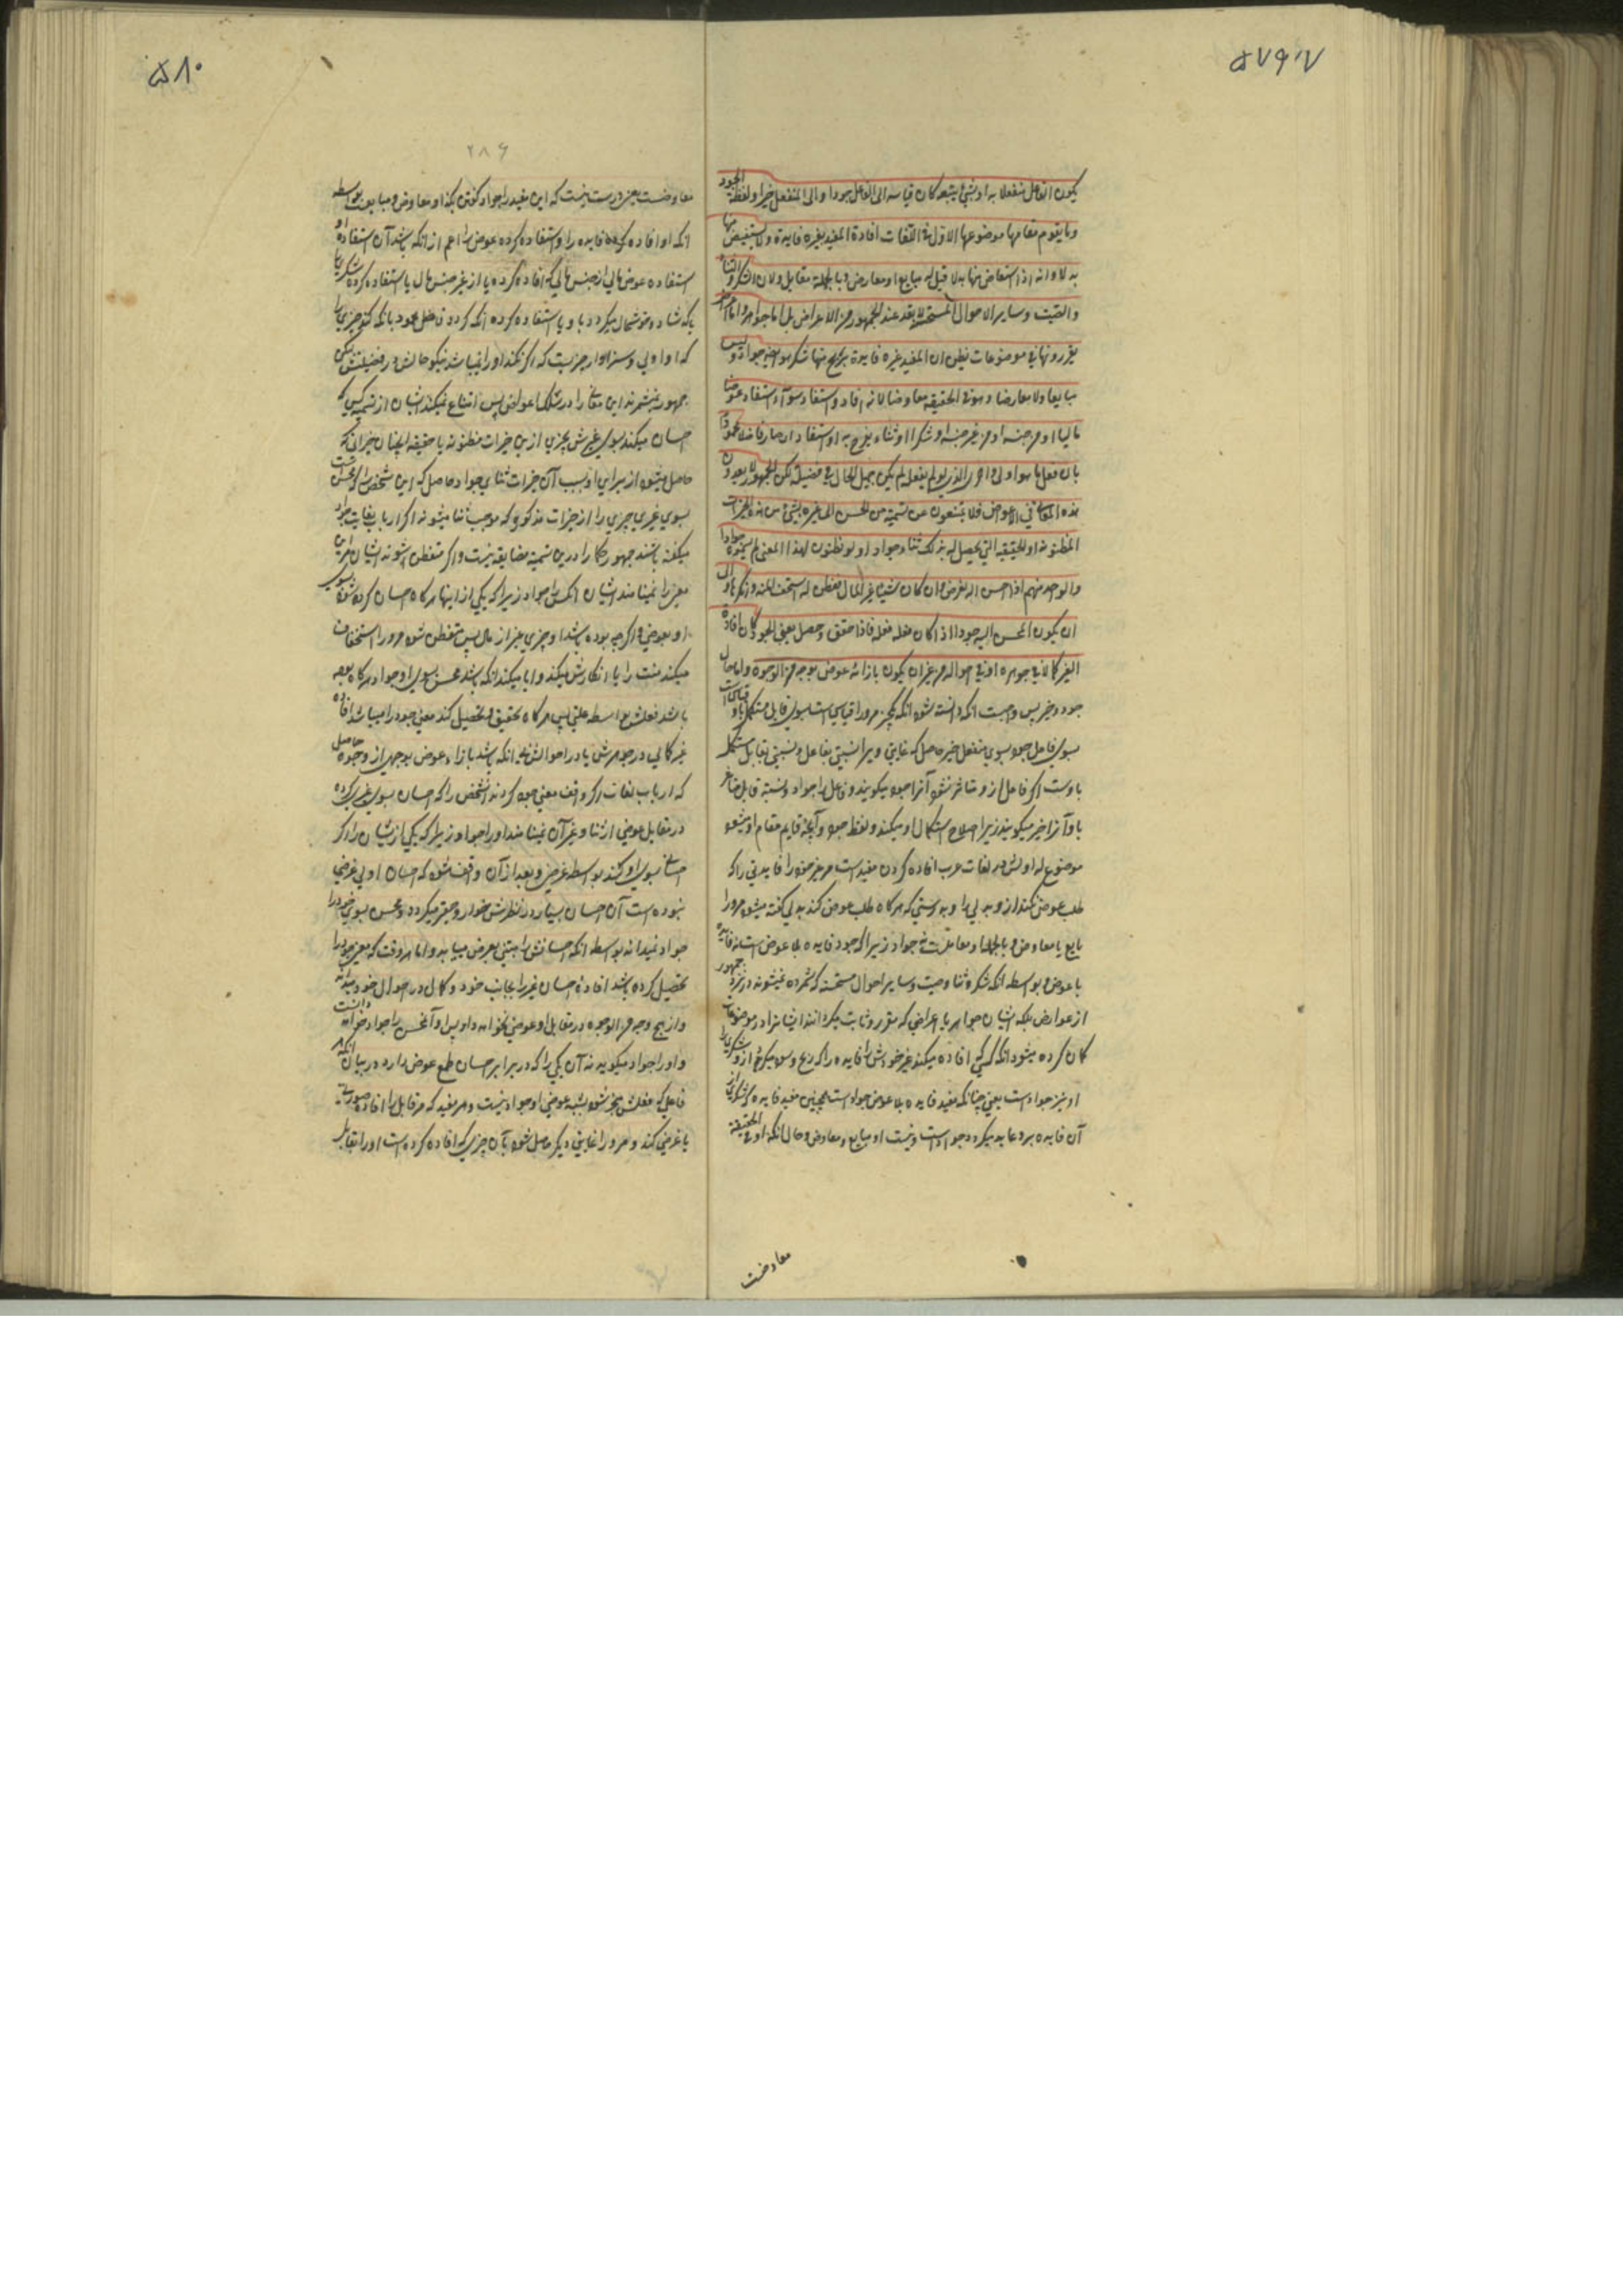 ۵۷۹
یکون الفاعل منفعلا به او بشیء یتبعه کان قیاسه الی الفاعل جودا والی المنفعل خیرا ولفظة الجود
وما یقوم مقامها موضوعها الاول فی اللغات افادة المفید لغیره فایدة ولا یستعیض منها
بدلا وانه اذا استعاض منها بدلا قیل له مبایع او معارض وبالجملة مقابل ولان الشکر والثناء
والصیت وسایر الاحوال المستحسنة لا یعد عند الجمهور من الاعراض بل اما جواهر واما اعراض
یقررونها فی موضوعات یظن ان المفید غیره فایدة یربح منها شکرا هو ایضا جواد ولیس
مبایعا ولا معارضا وهو فی الحقیقة معاوض لانه افاد واستفاد سواء استفاد عوضا
مالیا او من جنسه او من غیر جنسه او شکرا او ثناء یفرح به او استفاد ان صار فاضلا محمودا
بان فعل ما هو اولی واحری الذی لو لم یفعله لم یکن جمیل الحال فی فضیلة لکن الجمهور لا یعدون
هذه المعانی فی الاعواض فلا یمتنعون عن تسمیة من یحسن الی غیره بشیء من هذه الخیرات
المظنونة او الحقیقیة التی یحصل له بذلک ثناء جوادا ولو فطنوا لهذا المعنی لم یسموه جوادا
والواحد منهم اذا احسن الیه لغرض وان کان شیئا غیر المال ففطن له استخف المنة وانکرها وابی
ان یکون المحسن الیه جوادا اذا کان فعله لعلة فاذا حقق وحصل معنی الجود کان افادة
الغیر کمالا فی جوهره او فی احواله من غیر ان یکون بازائه عوض بوجه من الوجوه واما حال
بسوی فاعل جود بسوی منفعل خیر حاصل که غایتی ویرا نسبتی بفاعل و نسبتی بقابل مستکمل
باوست اگر فاعل ازو متاثر نشود آنرا جود میگویند و فاعل را جواد و نسبته قابل متاثر
با و آنرا خیر میگویند زیرا صلاح استکمال او میکند و لفظ جود و آنچه قایم مقام او میشود
موضوع له اولش در لغات عرب افاده کردن مفید است مر غیر خود را فایدتی را که
طلب عوض نکند ازو بدلی را و بدرستی که هرگاه طلب عوض کند بدلی گفته میشود مر او را
بایع یا معاوض و بالجمله او معاملست نه جواد زیرا که جود فایده بلا عوض است نه فایده
با عوض و بواسطه انکه شکر و ثنا و صیت و سایر احوال مستحسنه که شمرده نمیشوند در نزد جمهور
از عوارض بلکه ایشان جواهر یا اعراضی که مقرر و ثابت میگردانند ایشانرا در موضوعات
گمان کرده میشود انکه کسی افاده میکند غیر خودش را فایده را که ربح و سود میگیرد ازو شکری را
او نیز جواد است یعنی چنانکه مفید فایده بلا عوض جواد است همچنین مفید فایده که شکر ازای
آن فایده برو عاید میگردد جواد است و نیست او مبایع و معاوض و حال انکه او فی الحقیقة
معاوضت
۵۸۰
۲۸۶
معاوضست یعنی درست نیست که این مفید را جواد گفتن بلکه او معاوض و مبایعت بواسطه
انکه او افاده کرده فایده را و استفاده کرده عوض را اعم از انکه باشد آن استفاده او
استفاده عوض مالی از جنس مالی که افاده کرده یا از غیر جنس مال یا استفاده کرده شکری را
یا که شاد و خوشحال میگردد باو یا استفاده کرده انکه گردد فاضل محمود بانکه کند چیزی را
که او اولی و سزاوار چیزیست که اگر نکند او را نمیباشد نیکو حالش در فضیلتش لکن
جمهور نمیشمرند این معانی را در سلک اعواض پس امتناع نمیکنند ایشان از تسمیه کسی که
احسان میکند بسوی غیرش بچیزی ازین خیرات مظنونه یا حقیقیه انچنان خیراتی که
حاصل میشود از برای او بسبب آن خیرات ثنای جواد حاصل که این شخص را که محسن است
بسوی غیری چیزی را از خیرات مذکوره که موجب ثنا میشوند اگر ارباب لغات جواد
میگفته باشند جمهور حکما را درین تسمیه مضایقه نیست و اگر متفطن شوند ایشان مر این
معنی را نمینامند ایشان انکس را جواد زیرا که یکی از اینها هرگاه احسان کرده شود بسوی
او بعوضی و اگرچه بوده باشد او چیزی غیر از مال پس متفطن شود مر او را استخفاف
میکند منت را یا انکارش میکند و ابا میکند انکه باشد محسن بسوی او جواد هرگاه بوده
باشد فعلش بواسطه علتی پس هرگاه تحقیق و تحصیل کند معنی جود را میباشد افاده
غیر کمالی در جوهرش یا در احوالش بی انکه باشد بازاء عوض بوجهی از وجوه حاصل
که ارباب لغات اگر واقف معنی جود گردند آنشخص را که احسان بسوی غیری کرده
در مقابل عوضی از ثنا و غیر آن نمینامند او را جواد زیرا که یکی از ایشان را اگر
احسانی بسوی او کند بواسطه غرضی و بعد از آن واقف شود که احسان او بی غرضی
نبوده است آن احسان بسیار در نظرش خوار و حقیر میگردد و محسن بسوی خود را
جواد نمیداند بواسطه انکه احسانش را مبتنی بعرض میباید و اما هر وقت که معنی جود را
تحصیل کرده باشد افادة احسان غیر را بجانب خود و کمال در احوال خود میداند
و از هیچ وجه من الوجوه در مقابل او عوضی نخواهد داد پس او آنکس را جواد خواهد دانست
و او را جواد میگوید نه آن یکی را که در برابر احسان طمع عوض دارد در بیان انکه هر
فاعلی که فعلش منجر شود بشبه عوضی او جواد نیست و هر مفید که مر قابل را افاده صورت
یا عرضی کند و مر او را غایتی دیگر حاصل شود بآن چیزی که افاده کرده است او را بقابل